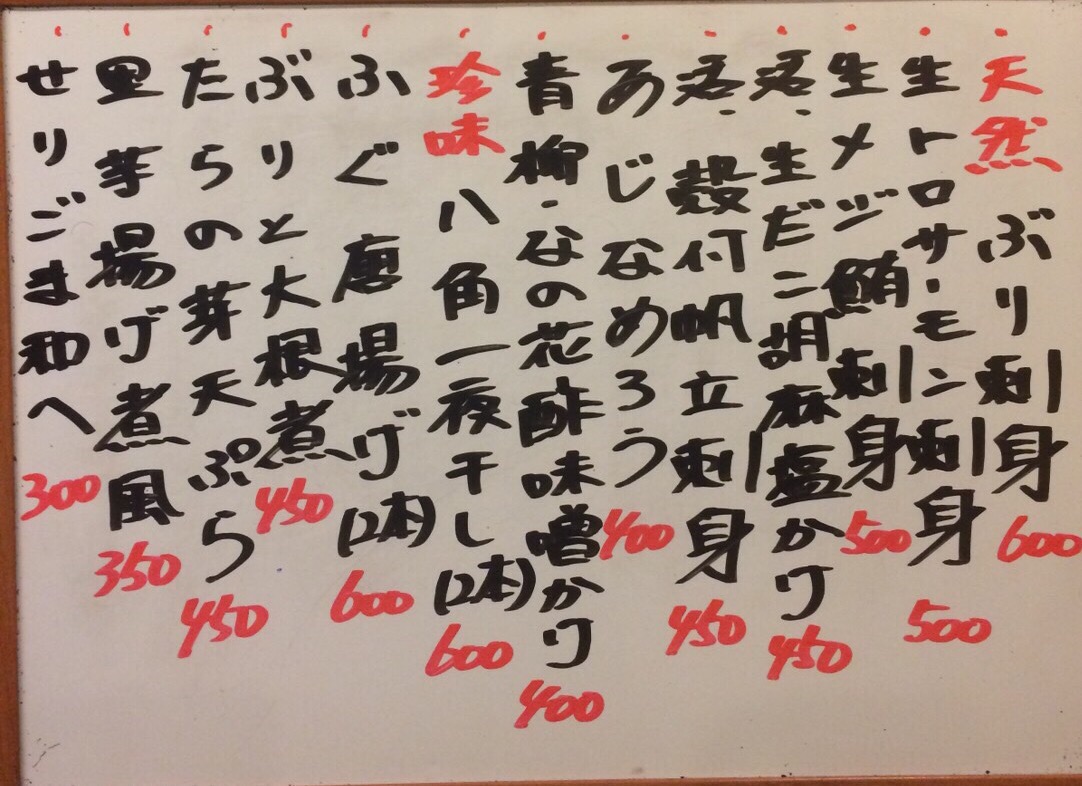 ・天然ぶり刺身 600
・生トロサーモン刺身 500
・生メジ鮪刺身 500
・活・生だこ胡麻塩かけ 450
・活・殻付帆立刺身 450
・あじなめろう 400
・青柳・なの花酢味噌かけ 400
・珍味八角一夜干し(2本) 600
・ふぐ唐揚げ(2本) 600
・ぶりと大根煮 450
・たらの芽天ぷら 450
・里芋揚げ煮風 350
・せりごま和へ 300